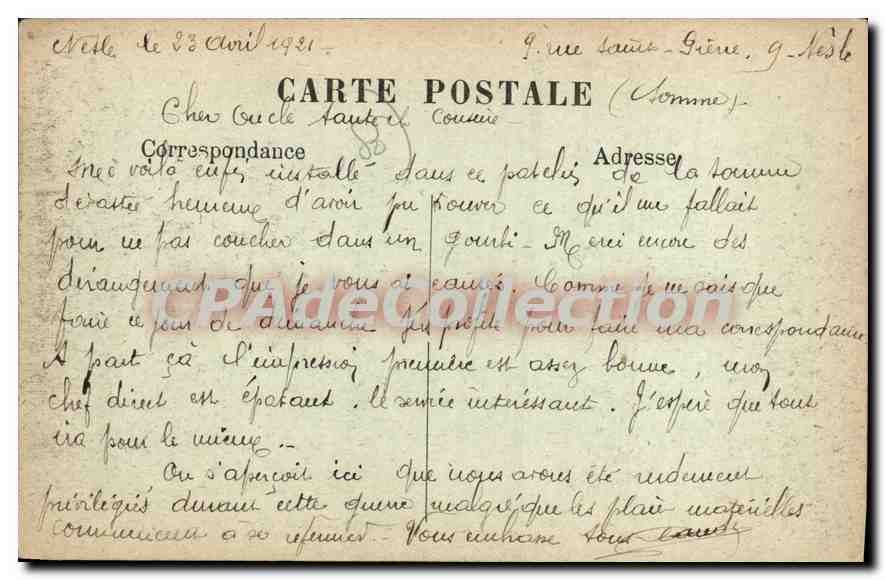 Nesle le 23 avril 1921 -
9, rue Saint- 9 - Nesle
CARTE POSTALE (Somme) -
Cher Oncle Tante et Cousine -
Correspondance
Adresse
Me voilà enfin installé dans ce patelin de la Somme
dévastée heureux d'avoir pu trouver ce qu'il me fallait
pour ne pas coucher dans un gourbi - Merci encore des
dérangements que je vous ai causés. Comme je ne sais que
faire ce jour de dimanche j'en profite pour faire ma correspondance
A part çà l'impression première est assez bonne, mon
chef direct est épatant. le service intéressant. J'espère que tout
ira pour le mieux. -
On s'aperçoit ici que nous avons été rudement
privilégiés durant cette guerre malgré que les plaies matérielles
commencent à se refermer - Vous embrasse tous
CPAdeCollection